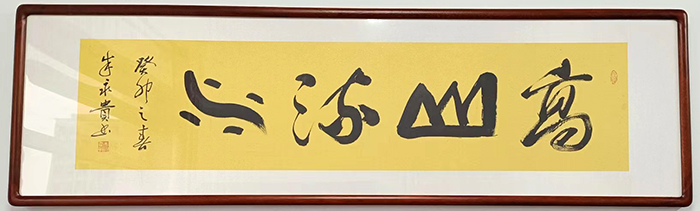 高山流水
癸卯之春
永貴书